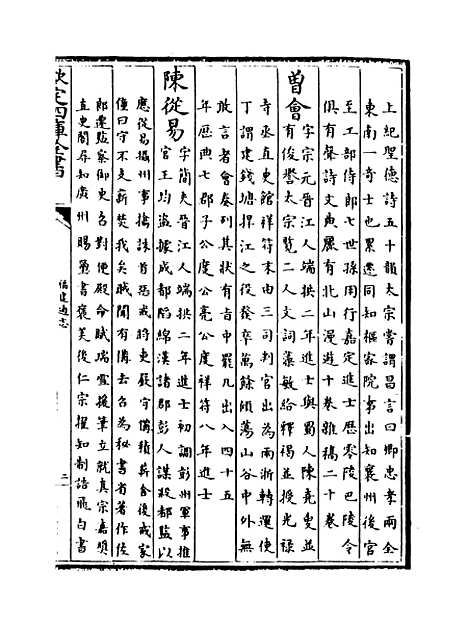 上紀聖德詩五十韻太宗嘗謂昌言曰卿忠孝兩全
東南一奇士也累遷同知樞密院事出知襄州後官
至工部侍郎七世孫用行嘉定進士歷零陵巴陵令
俱有聲詩文典麗有北山漫遊十卷雜稿二十卷
曾會
字宗元晉江人端拱二年進士與蜀人陳堯叟並
有俊譽太宗覽二人文詞藻敏給釋褐並授光祿
寺丞直史館祥符末由三司判官出為兩浙轉運使
丁謂建錢塘捍江之役發卒萬餘傾蕩山谷中外無
敢言者會奏列其狀有旨中罷凡出入四十五
年歷典七郡子公度公亮公度祥符八年進士
陳從易
字簡夫晉江人端拱二年進士初調彭州軍事推
官王均盜據成都陷綿漢諸郡彭人謀殺都監以
應從易攝州事擒誅首惡戒將吏嚴守備積薪舍後戒家
僮曰守不支薪焚我矣賊聞有備去召為秘書省著作佐
郎遷監察御史召對便殿命賦瑞雲援筆立就真宗嘉奬
直史館尋知廣州賜璽書褒美後仁宗擢知制誥飛白書
欽定四庫全書
福建通志
二